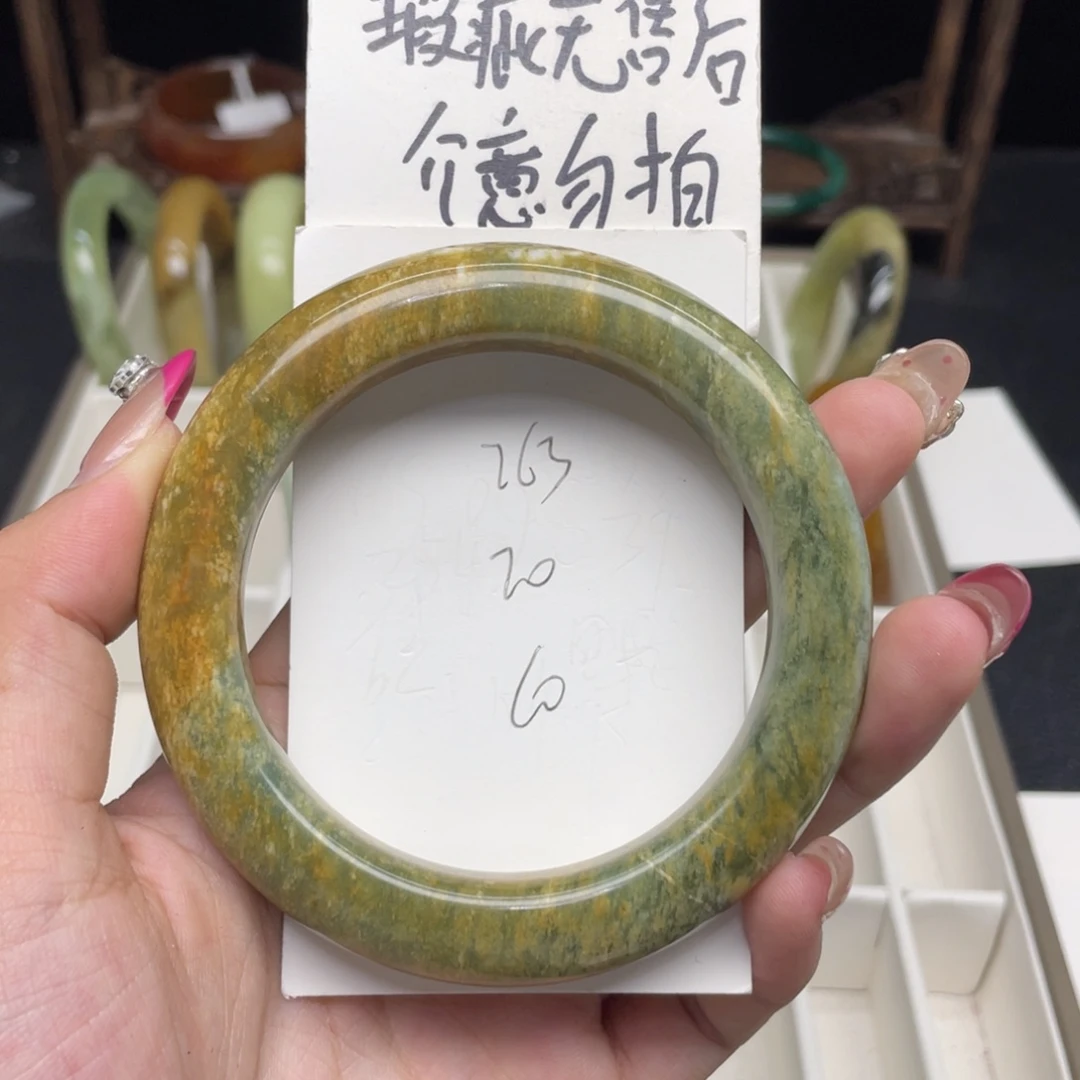 瑕疵无售后
介意勿拍
763
20
60